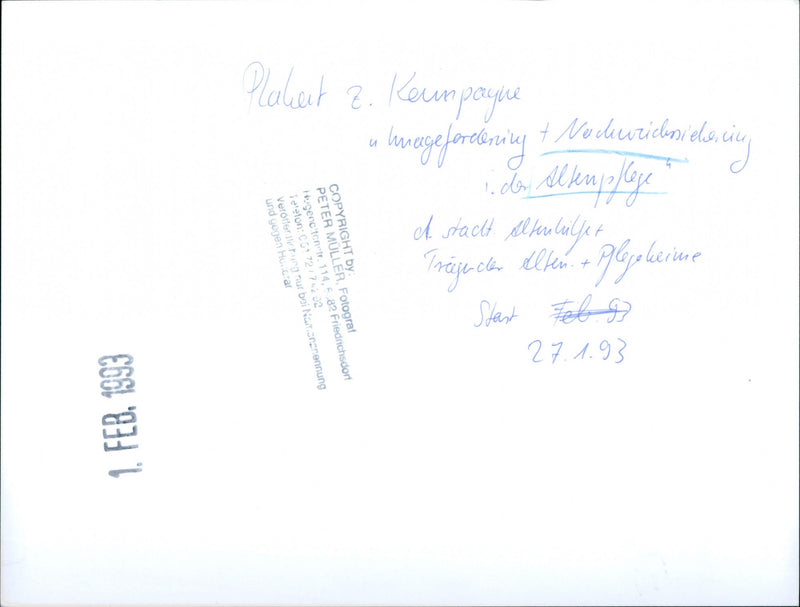 Plakat z. Kampagne
„Imageförderung + Nachwuchssicherung
i. der Altenpflege"
d. stadt Altenhilfe +
Träger der Alten. + Pflegeheime
Start Feb. 93
27.1.93
COPYRIGHT by:
PETER MÜLLER, Fotograf
Hugenottenstr. 114, 6382 Friedrichsdorf
Telefon
Veröffentlichung nur bei Namensnennung
und gegen Honorar
1. FEB. 1993